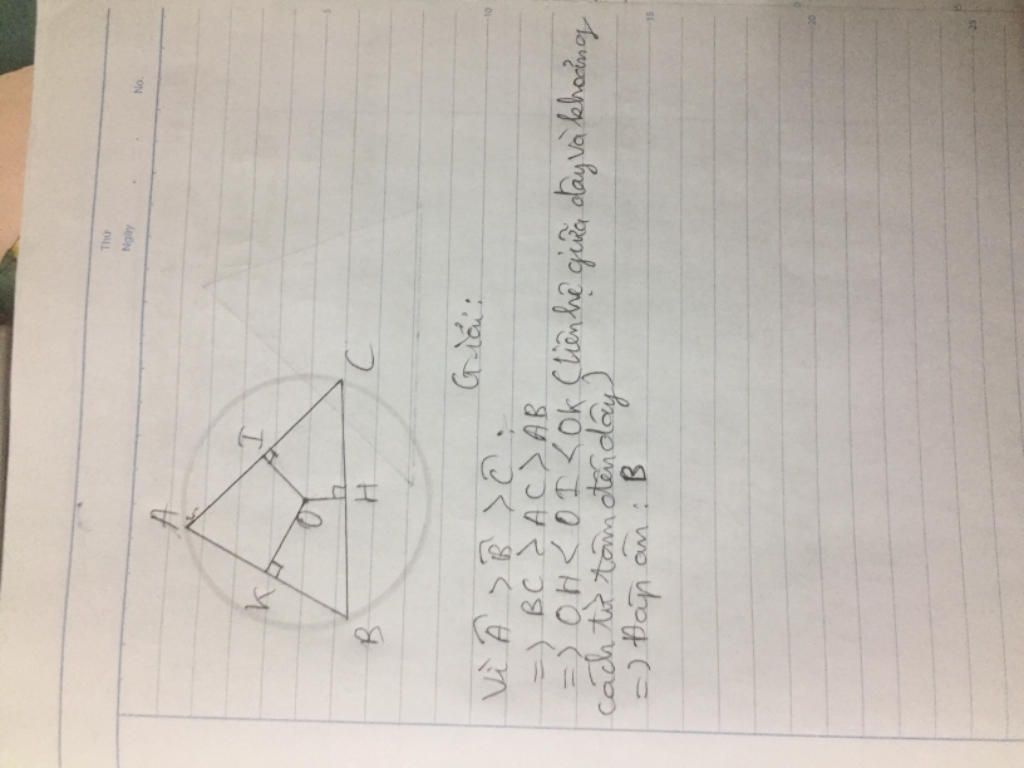 Thứ
Ngày
No.
5
10
15
20
25
A
K
I
O
B
H
C
Giải:
Vì Â > B̂ > Ĉ:
=> BC > AC > AB
=> OH < OI < OK (liên hệ giữa dây và khoảng
cách từ tâm đến dây)
=> Đáp án: B